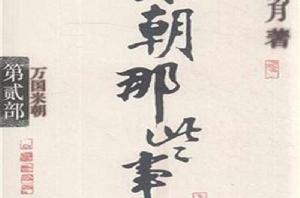 朝那些事
月著
万国来朝
第贰部